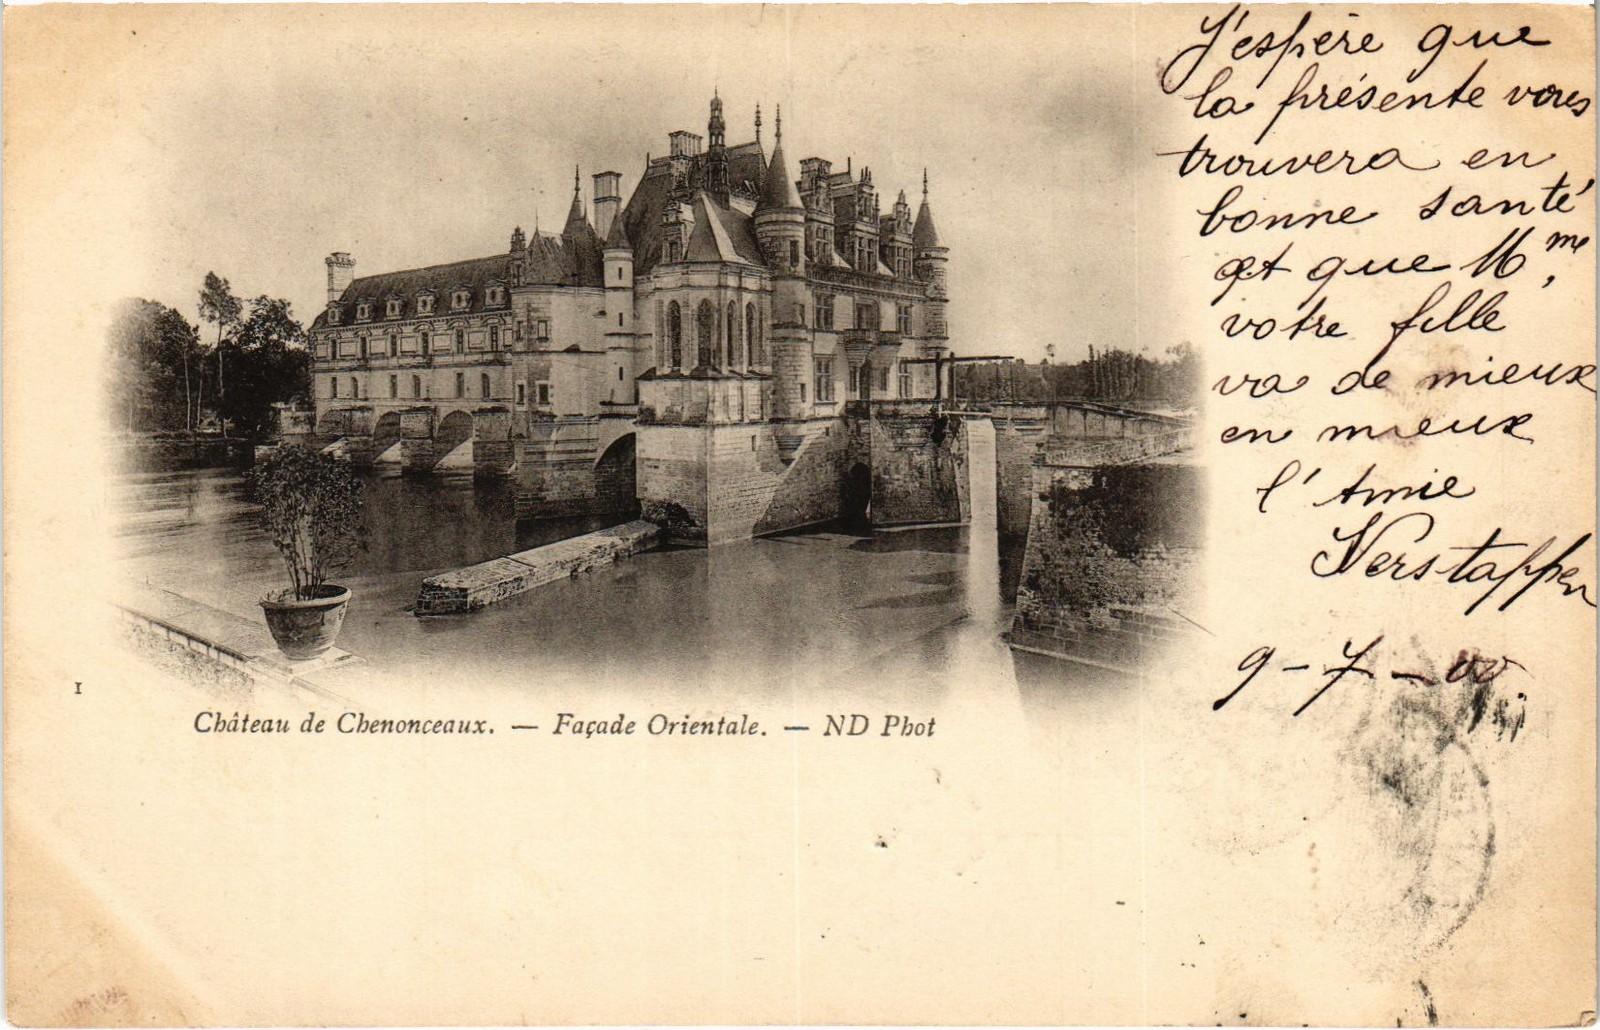 J'espère que
la présente vous
trouvera en
bonne santé
et que Mme,
votre fille
va de mieux
en mieux
l'Amie
Verstappen
9-7-00
1
Château de Chenonceaux. — Façade Orientale. — ND Phot